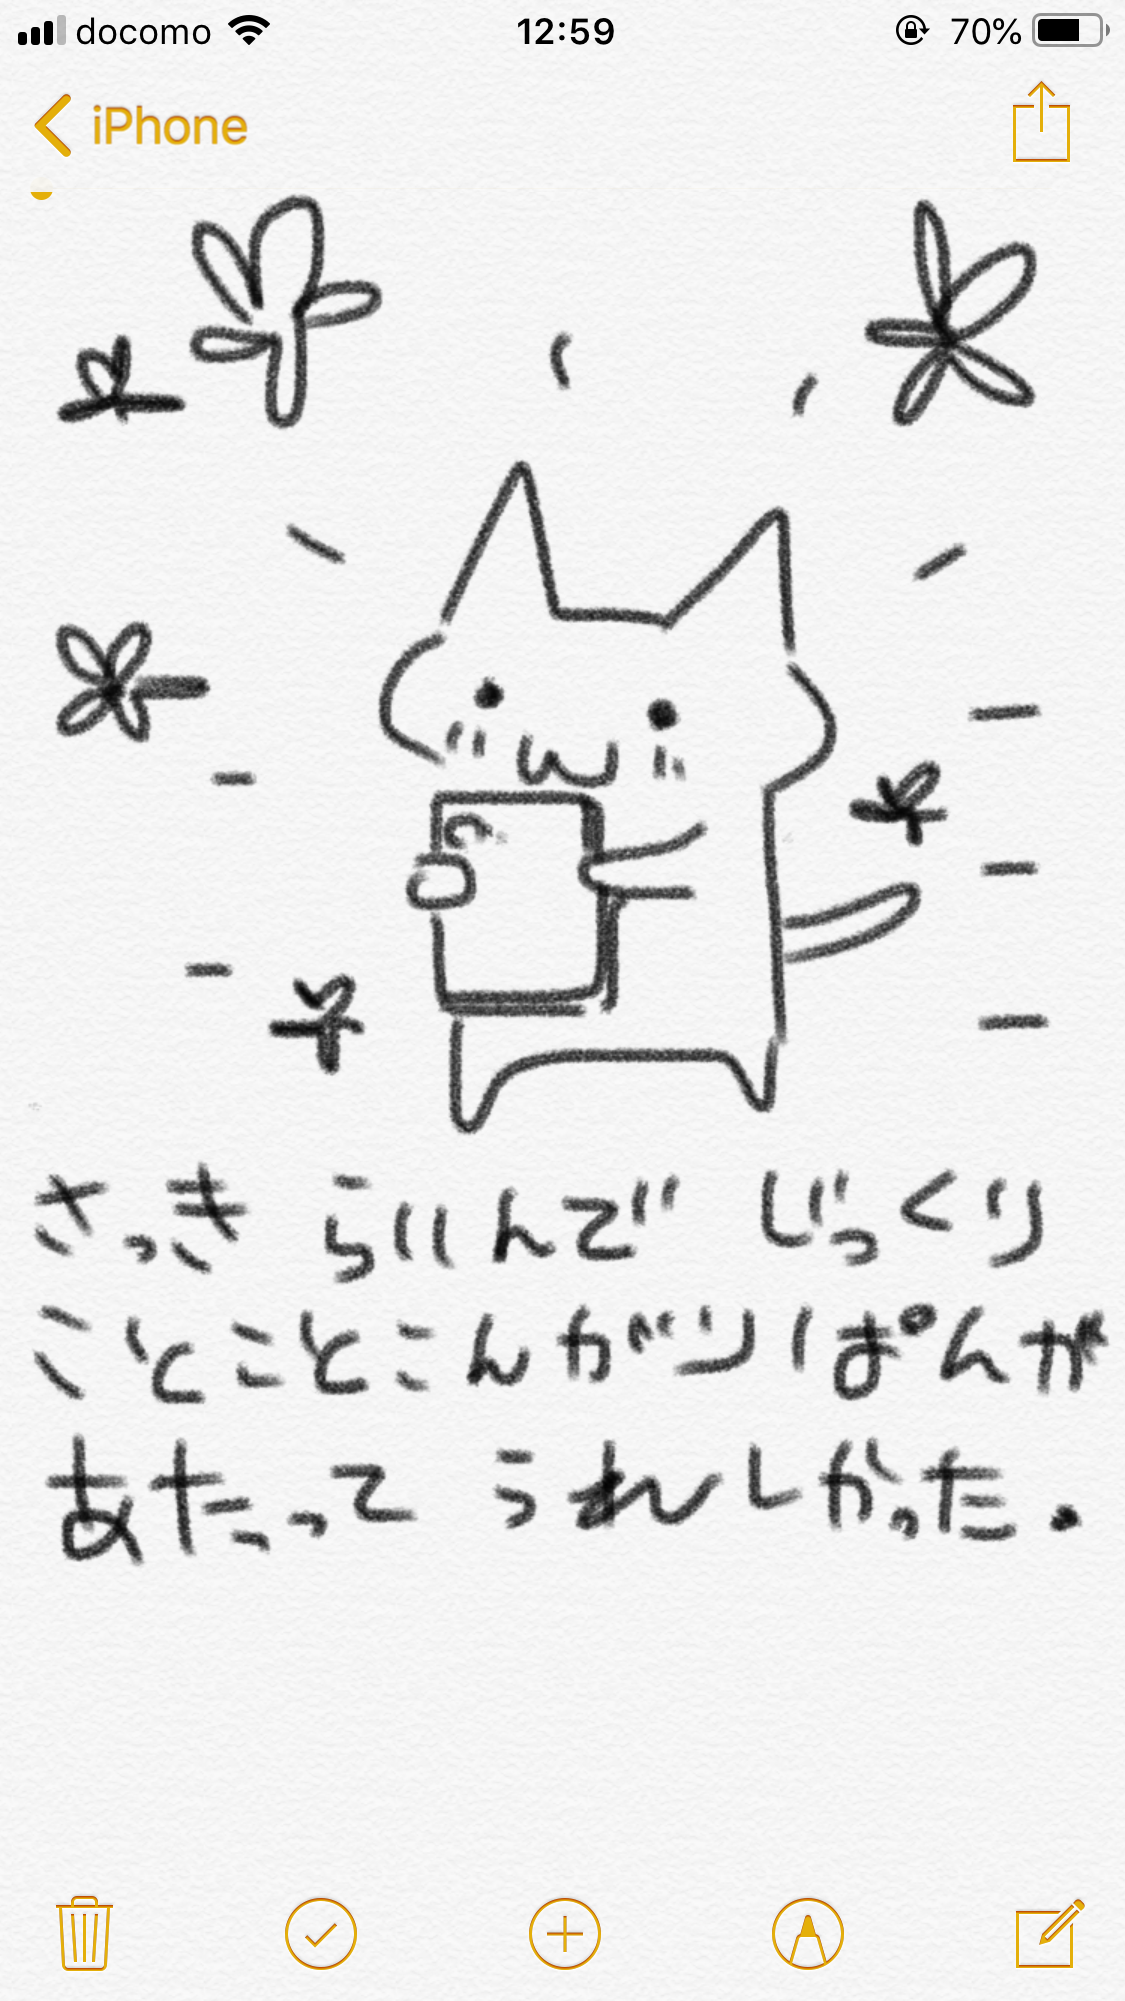 docomo 12:59 70%
iPhone
さっき らいんで じっくり
ことことこんがりぱんが
あたって うれしかった.